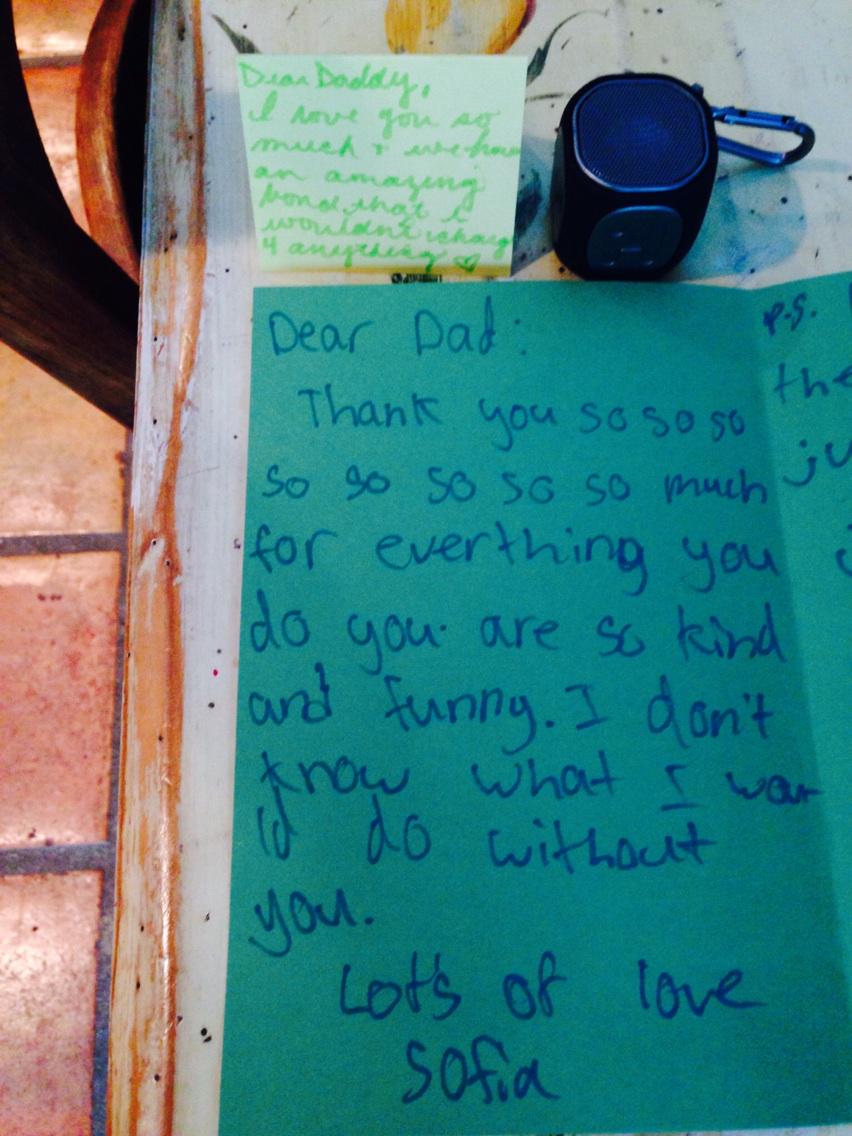 Dear Daddy,
I love you so
much + we have
an amazing
bond that I
wouldn't chang
4 anything ♡
Dear Dad:
Thank you so so so
so so so so so much
for everthing you
do you are so kind
and funny. I don't
know what I wou
ld do without
you.
Lot's of love
Sofia
p.s.
the
ju